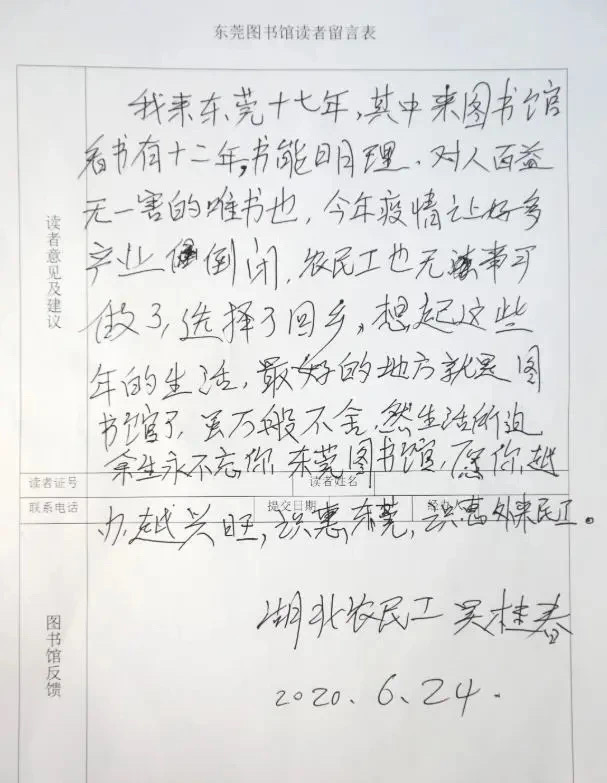 东莞图书馆读者留言表
读者意见及建议
我来东莞十七年,其中来图书馆
看书有十二年,书能明理、对人百益
无一害的唯书也,今年疫情让好多
产业倒闭,农民工也无事可
做了,选择了回乡,想起这些
年的生活,最好的地方就是图
书馆了,虽万般不舍,然生活所迫
余生永不忘你,东莞图书馆,愿你越
读者证号
读者姓名
办越兴旺,识惠东莞,识惠外来民工。
联系电话
提交日期
经办人
图书馆反馈
湖北农民工 吴桂春
2020.6.24.